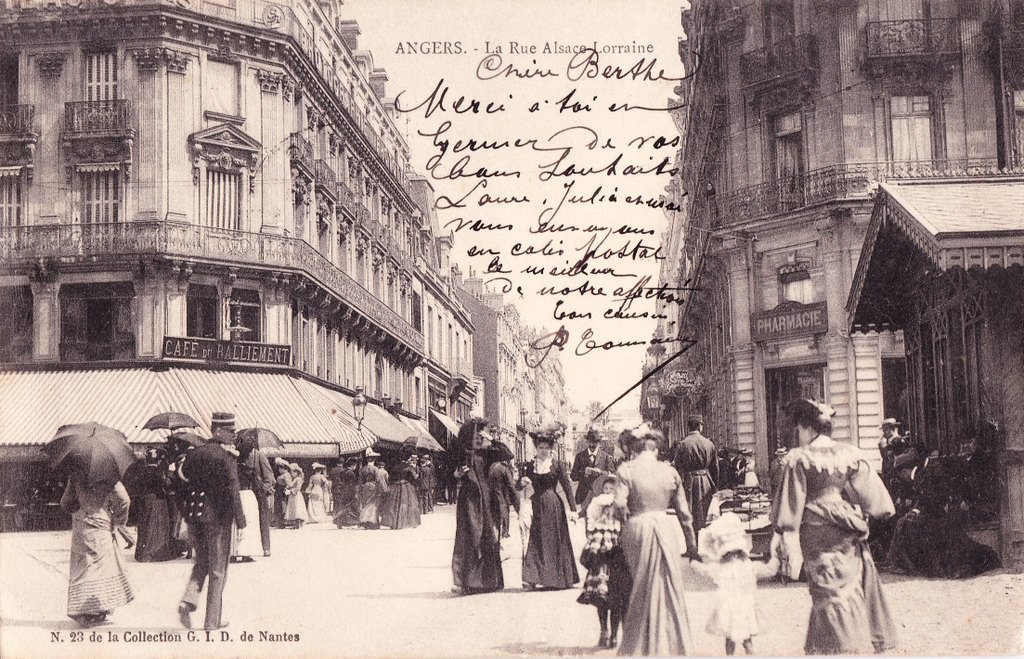 ANGERS. - La Rue Alsace-Lorraine
Chère Berthe
Merci à toi en
de vos
bons souhaits
Laure, Julia et moi
vous envoyons
en postal
le meilleur
de notre affection
Ton cousin
CAFÉ DU RALLIEMENT
PHARMACIE
N. 23 de la Collection G. I. D. de Nantes